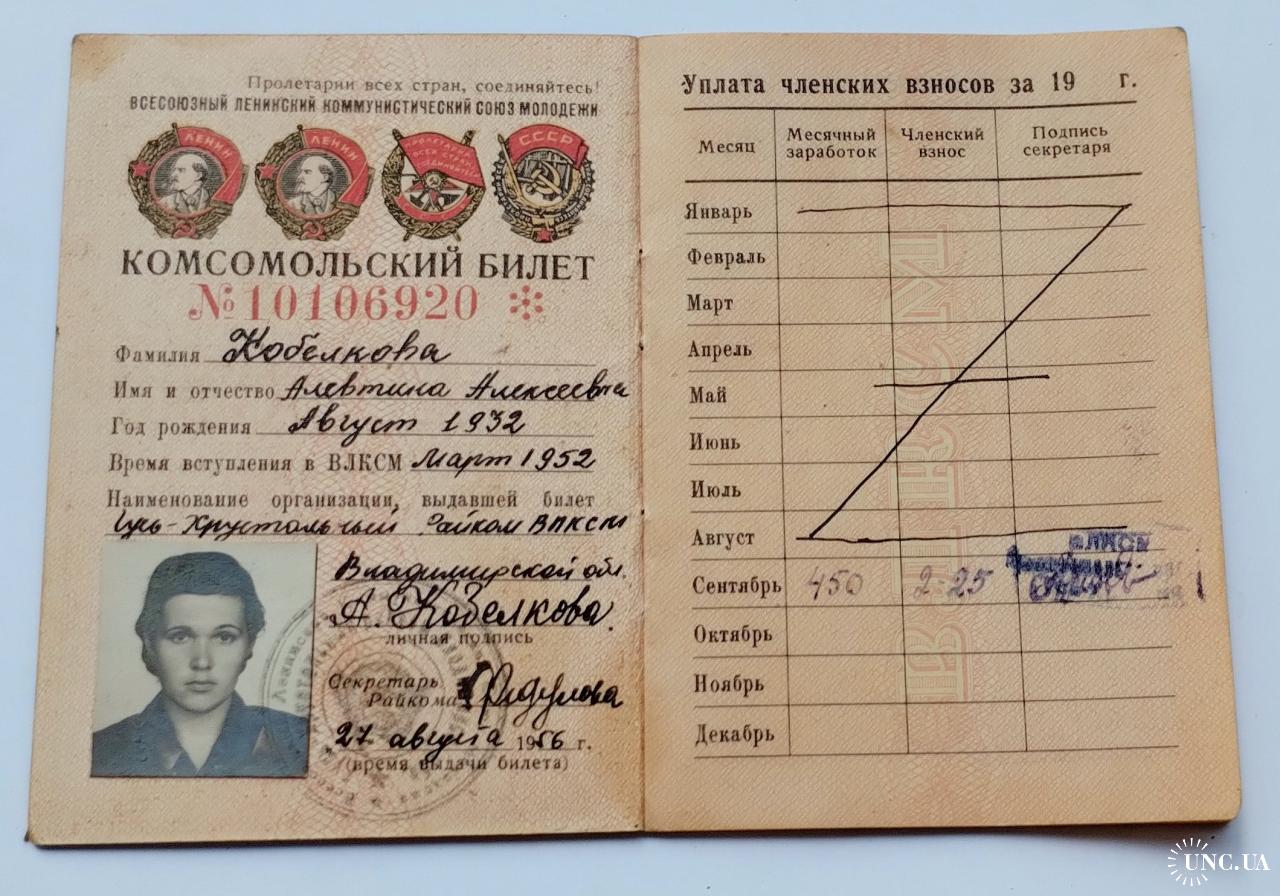 Пролетарии всех стран, соединяйтесь!
ВСЕСОЮЗНЫЙ ЛЕНИНСКИЙ КОММУНИСТИЧЕСКИЙ СОЮЗ МОЛОДЕЖИ
ЛЕНИН
ЛЕНИН
ПРОЛЕТАРИИ ВСЕХ СТРАН СОЕДИНЯЙТЕСЬ
СССР
КОМСОМОЛЬСКИЙ БИЛЕТ
№ 10106920
Фамилия Кобелкова
Имя и отчество Алевтина Алексеевна
Год рождения Август 1932
Время вступления в ВЛКСМ Март 1952
Наименование организации, выдавшей билет
Гусь-Хрустальный Райком ВЛКСМ
Владимирской обл.
А. Кобелкова
личная подпись
Секретарь
Райкома
"27 августа 1956 г.
(время выдачи билета)
Уплата членских взносов за 19 г.
Месяц Месячный заработок Членский взнос Подпись секретаря
Январь
Февраль
Март
Апрель
Май
Июнь
Июль
Август
ВЛКСМ
Сентябрь 450 2-25
Октябрь
Ноябрь
Декабрь
ВЛКСМ
UNC.UA